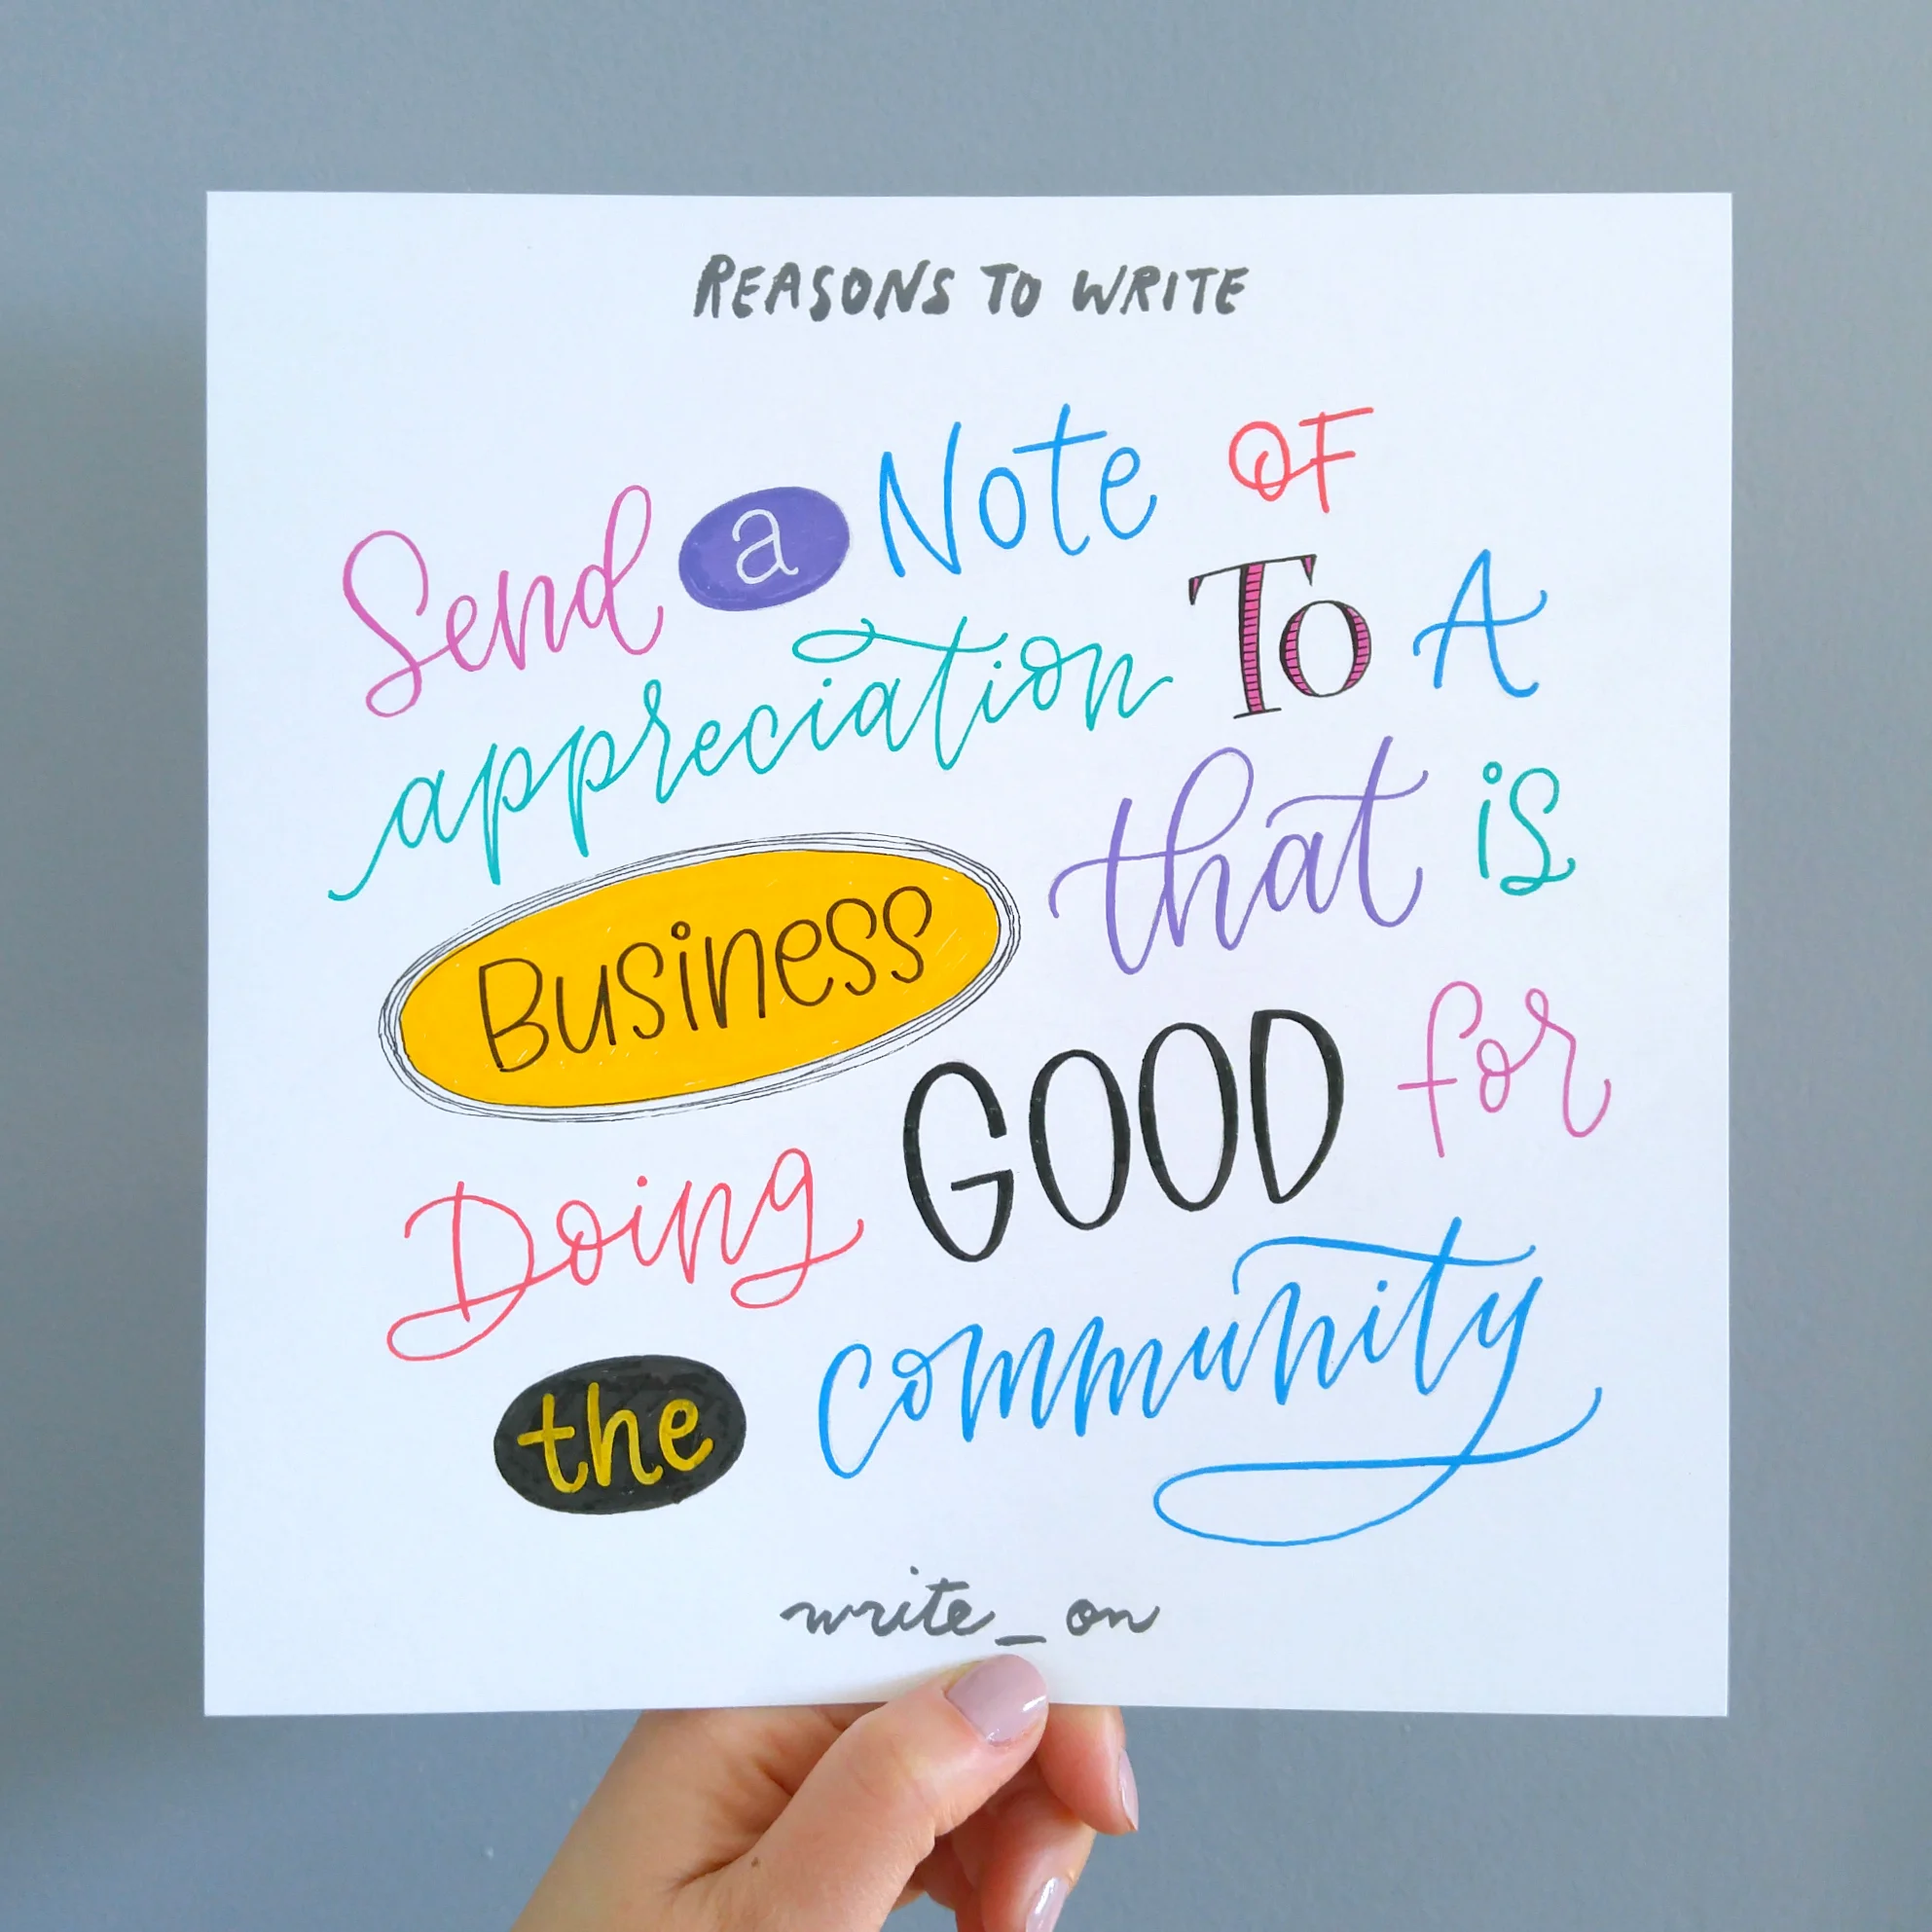 REASONS TO WRITE
Send a Note OF
appreciation To A
Business that is
Doing GOOD for
the community
write_on